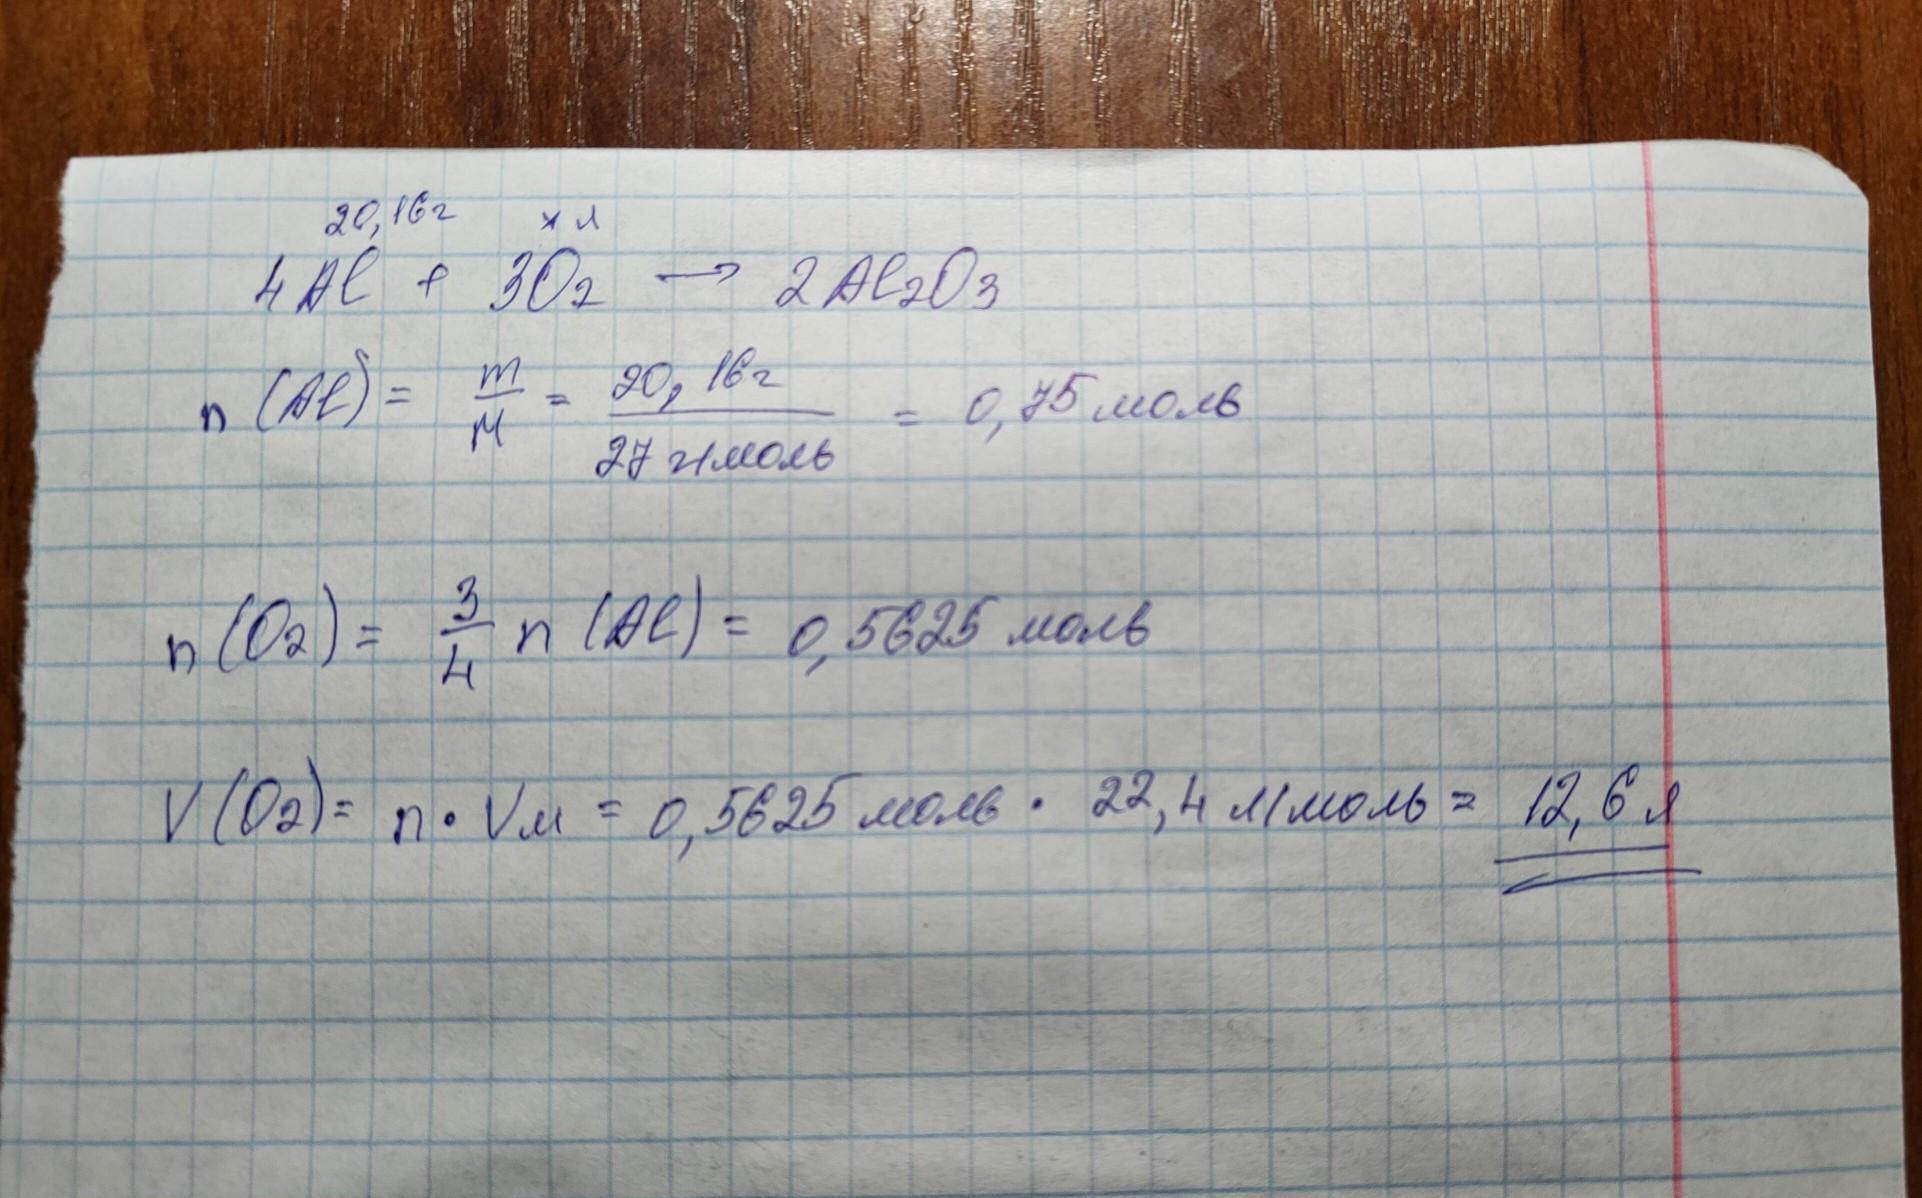 20,16г x л
4Al + 3O₂ → 2Al₂O₃
n (Al) = m/M = 20,16г/27 г/моль = 0,75 моль
n (O₂) = 3/4 n (Al) = 0,5625 моль
V (O₂) = n · Vм = 0,5625 моль · 22,4 л/моль = 12,6 л